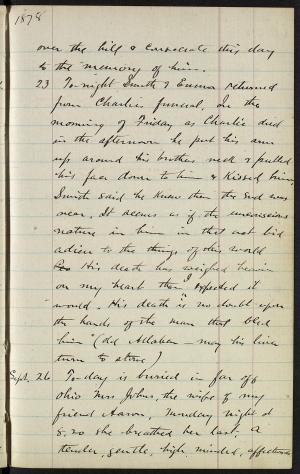 1878
over the hill & consecrate this day
to the memory of him.
23 To-night Smith & Emma returned
from Charlie's funeral, In the
morning of Friday as Charlie died
in the afternoon he put his arm
up around his brothers neck & pulled
his face down to him & kissed him,
Smith said he knew then the End was
near. It seems as if the unconscious
nature in him in that act bid
adieu to the things of this world
His death has weighed heavier
on my heart than I expected it
would. His death is no doubt upon
the hands of the man that bled
him (old - may his liver
turn to stone)
Sept. 26 To-day is buried in far off
Ohio Mrs Johns, the wife of my
friend Aaron, Monday night at
8.20 she breathed her last. A
tender, gentle, high minded, affectionate